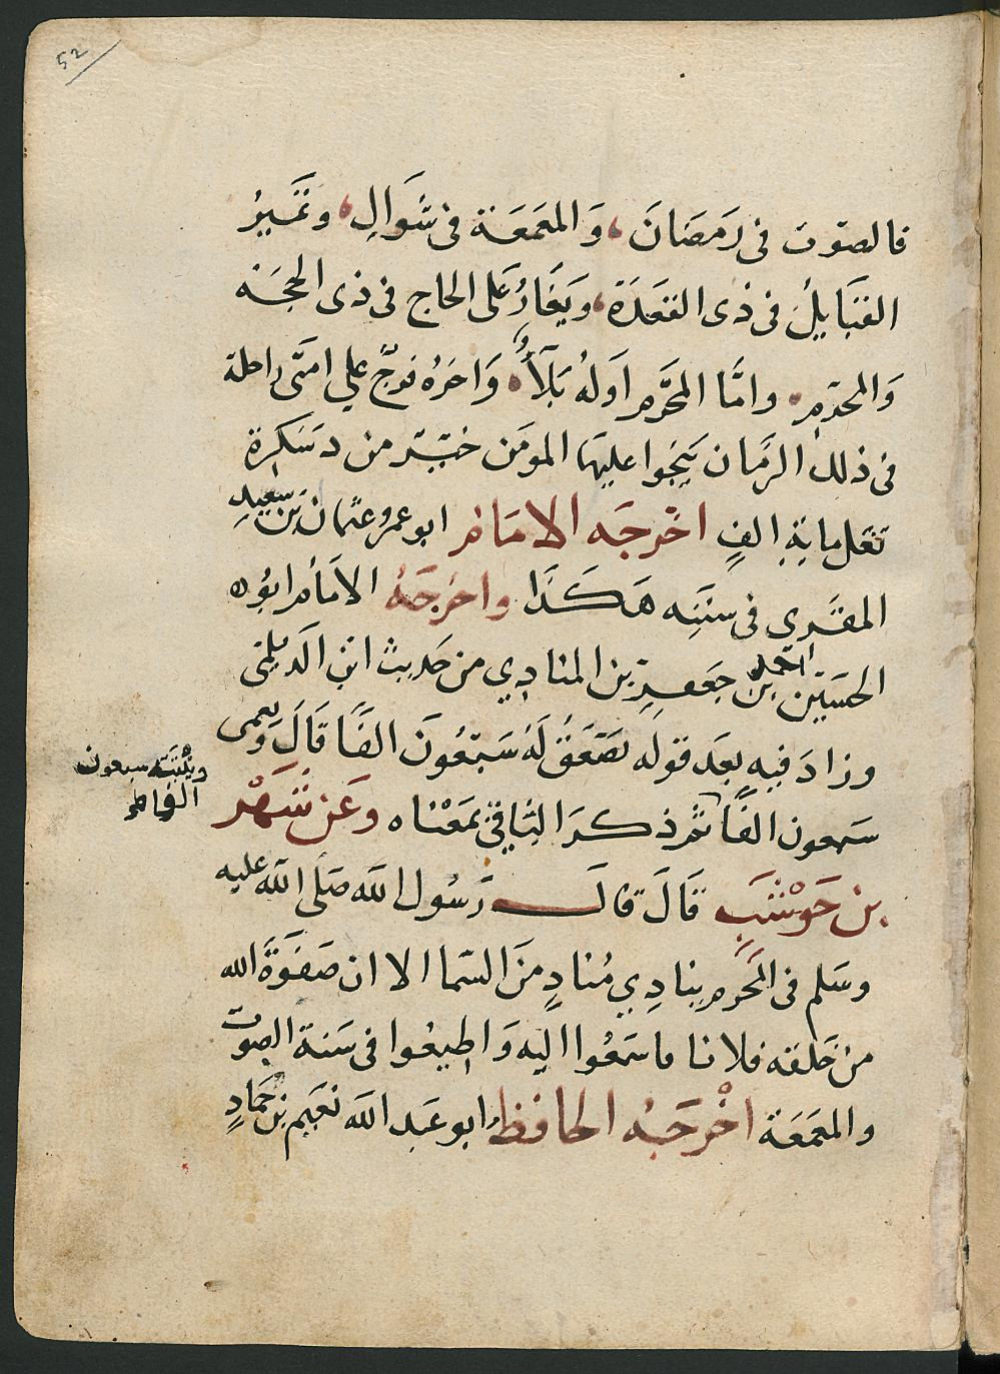 52
فالصوت فى رمضان، وَالمعمَعَة فى شَوالِ، وتميزُ
القبَايلُ فى ذى القعدَة، ويغَارُ عَلى الحاج فى ذى الحجَه
وَالمحرمِ، وامَّا المحَّرم اَولهُ بَلآءٌ، وَاخرُه فرجٌ علي امتَّى راحلة
فى ذلك الزمان ينجوا عليها المومَن خيرٌ من دسكرة
تغل ماية الفٍ اخرجَه الامَام ابو عمرو عثمان بن سعيد
المقَري فى سننِه هَكَذَا واخرَجَهُ الامَامُ ابوُ
الحسَين احمد بن جعفرِ بن المنادِي من حَديث ابن الديلمِى
وزادَ فيهِ بعَد قوله يصَعَقُ لَهُ سَبعُونَ الفًا قَالَ ويعمى
سَبعون الفًا ثم ذكرَ الباقىَ بمَعْناه وعَن شَهْر
ويثبته سبعون
الفا صح
بن حَوْشَبِ قَالَ قالَ رَسُول الله صَلى الله عليه
وسَلم فى المَحرمِ ينادِي مُنادٍ منَ السَما الا ان صَفوَةَ الله
من خَلقه فلانا فاسمَعُوا اليه وَاطيعُوا فى سَنة الصوت
والمعمَعَة اخْرَجَهُ الحافظُ ابو عَبد الله نعَيم بن حمادٍ